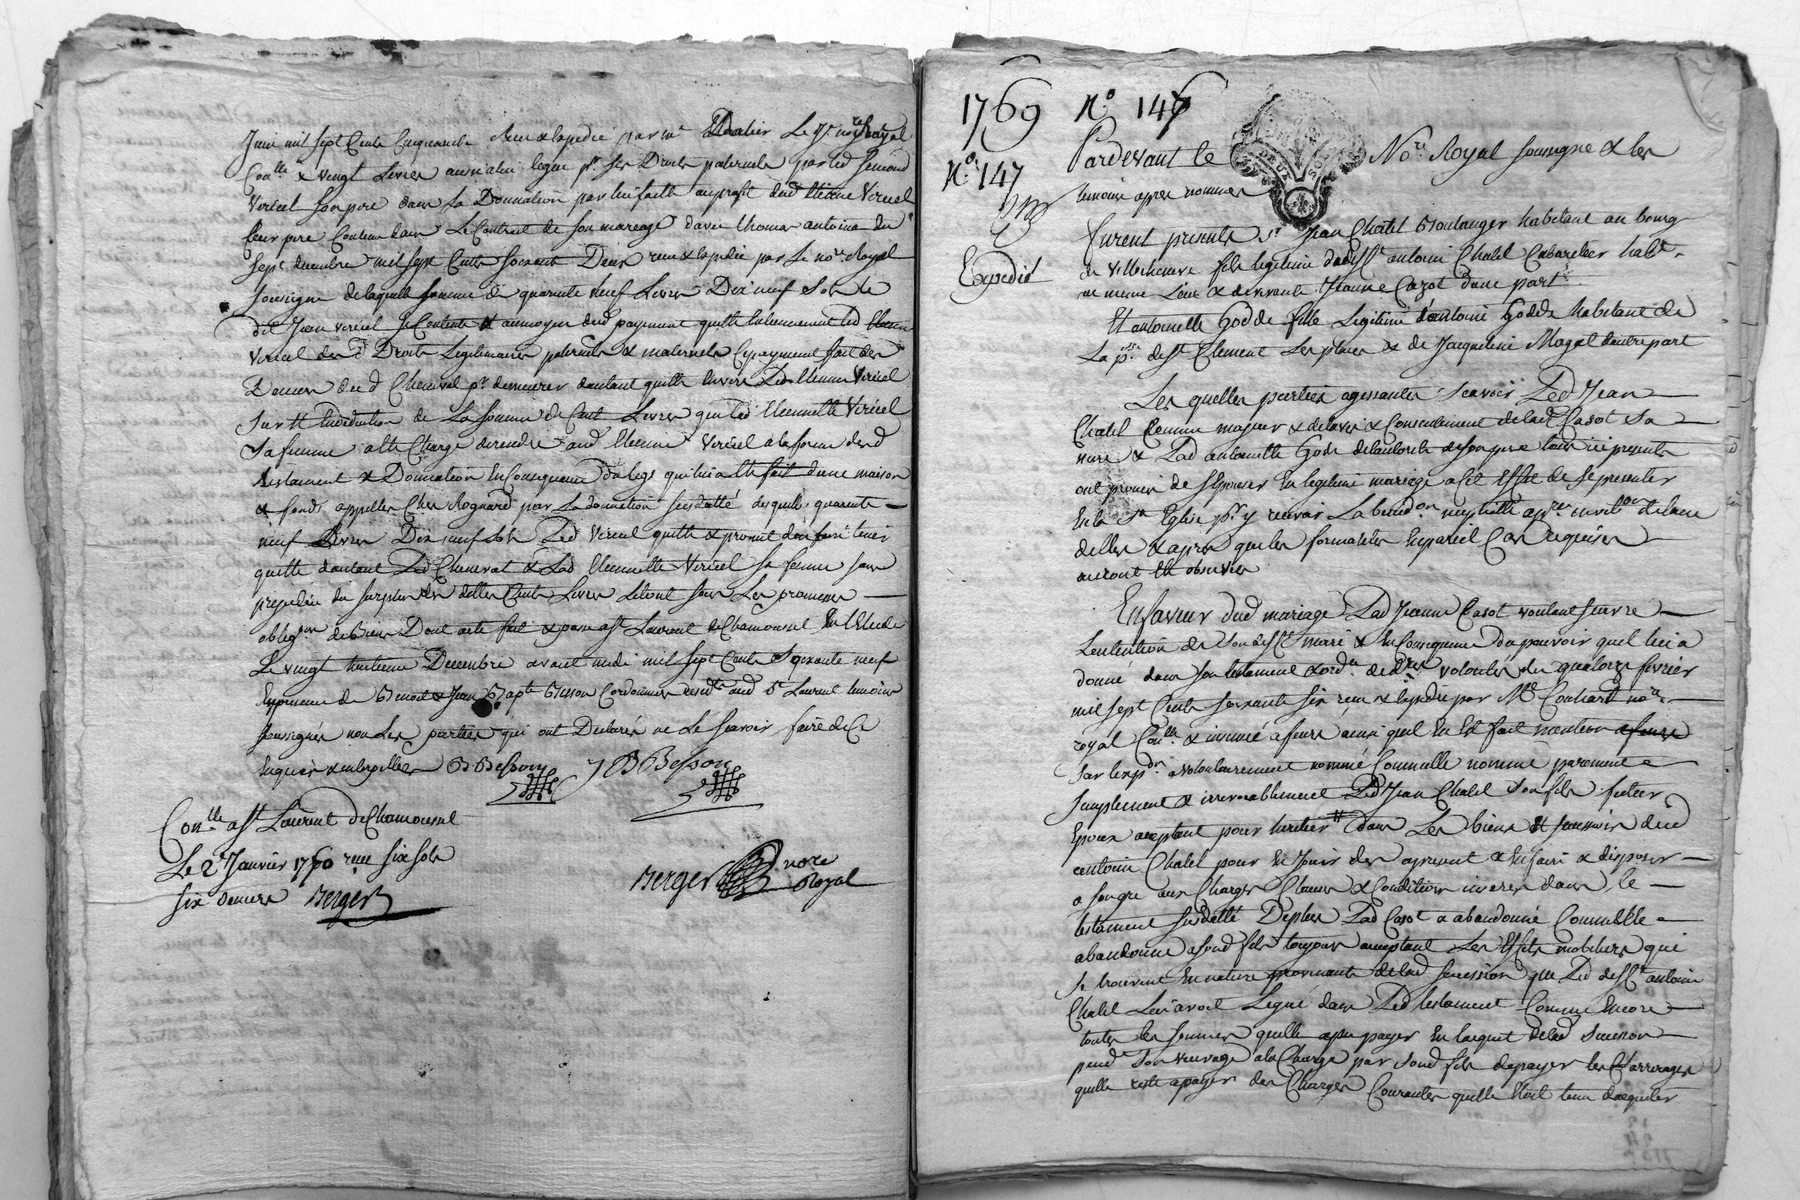 Juin mil sept Cents Cinquante receu & expedié par me Le Jr. nore Royal
Conlle & vingt Livres aussi a luy legué pr. ses Droits paternels par led
Vericel Son pere dans La Donnation par luy faitte au profit dud Etienne Vericel
leur pere Contenue dans Le Contrat de Son mariage d'avec thomas antoine du
Sept decembre mil sept Cents soixante Deux receu & expedié par Le nore. Royal
Soussigné de laquelle somme de quarante neuf Livres Dix neuf Sols le
dit Jean vericel Se Contente & au moyen dud payement quitte led Etienne
Vericel des d Droits Legitimaires paternels & maternels Ce payement fait des
Deniers dud Chenevat pr. demeurer d'autant quitte Envers Led Etienne Vericel
Sur Et En deduction de La somme de Cent Livres que lad Etiennette Vericel
Sa femme a Ete Chargé de rendre aud Etienne Vericel a la forme dud
testament & Donnation En Consequence du legs qui luy a Eté fait d'une maison
& fonds appellés Chez Rognard par La donnation susdattée desquelles quarante
neuf Livres Dix neuf Sols Led Vericel quitte & promet de faire tenir
quitte d'autant Led Chenevat & Lad Etiennette Vericel Sa femme sans
prejudice du Surplus des dittes Cents Livres Le tout sous Les promesses
obligons de Biens Dont acte fait & passé a St. Laurent de Chamousset En L'Etude
Le vingt huitieme Decembre avant midi mil sept Cents Soixante neuf
En presence de Benoit & Jean Bapte Besson Cordonniers residts aud St Laurent temoins
soussignés non Les parties qui ont Declarés ne Le Scavoir faire de Ce
Enquis & interpellés B Besson J B Besson
Conlle a St Laurent de Chamousset
Le 2e Janvier 1770 receu six sols
six deniers Berger
Berger nore Royal
1769 No 147
No. 147
Expedié
Pardevant le Nore Royal soussigné & les
DEUX SOLS
temoins apres nommes
furent presents Sr. Jean Chatel Boulanger habitant au bourg
de Villechenève fils legitime dudeft antoine Chatel Cabaretier habt.
au meme Lieu & de vivante Jeanne Cazot d'une part
Et antoinette Godde fille Legitime d'antoine Godde habitant de
La psse. de St. Clement Les places & de Jacqueline Magat d'autre part
Les quelles parties agissantes Scavoir Led Jean
Chatel Comme majeur & de lavis & Consentement de lad Casot Sa
mere & Lad antoinette Gode de l'autorité de Son pere tous ici presents
ont promis de S'Epouser En legitime mariage a cet Effet de Se presenter
En la Ste Eglise pr. y recevoir La benedon nuptialle apres invitaon de l'une
delles & apres que les formalités En pareil Cas requises
auront Eté observées
En faveur dud mariage Lad Jeanne Casot voulant suivre
L'intention de Son deft mari & En Consequence du pouvoir quel luy a
donné dans Son testament & orde. de dres volontés du quatorze fevrier
mil sept Cents soixante six receu & Expedié par Me Conhard nore.
royal Conlle & insinué a feurs ainsi quil En Est fait mention a feurs
Sur l'expon. a volontairement nommé Comme Elle nomme purement
Simplement & irrevocablement Led Jean Chatel Son fils futur
Epoux acceptant pour heritier dans Les biens Et Succession dud
antoine Chatel pour En Jouir des apresent & En faire & disposer
a Son gré aux Charges Clauses & Conditions inserés dans le
testament Susdatté De plus Lad Casot a abandonné Comme Elle
abandonne a Sond fils toujours acceptant Les Effets mobiliers qui
Se trouvent En nature provenants de lad Succession que Led deft antoine
Chatel Lui avoit Legué dans Led testament Comme Encore
toutes les sommes qu'elle a pu payer En l'acquit de lad Succession
pendt Son veuvage a la Charge par Sond fils de payer les Carrerages
qu'elle reste a payer des Charges Courantes qu'elle Etoit tenu d'acquiter